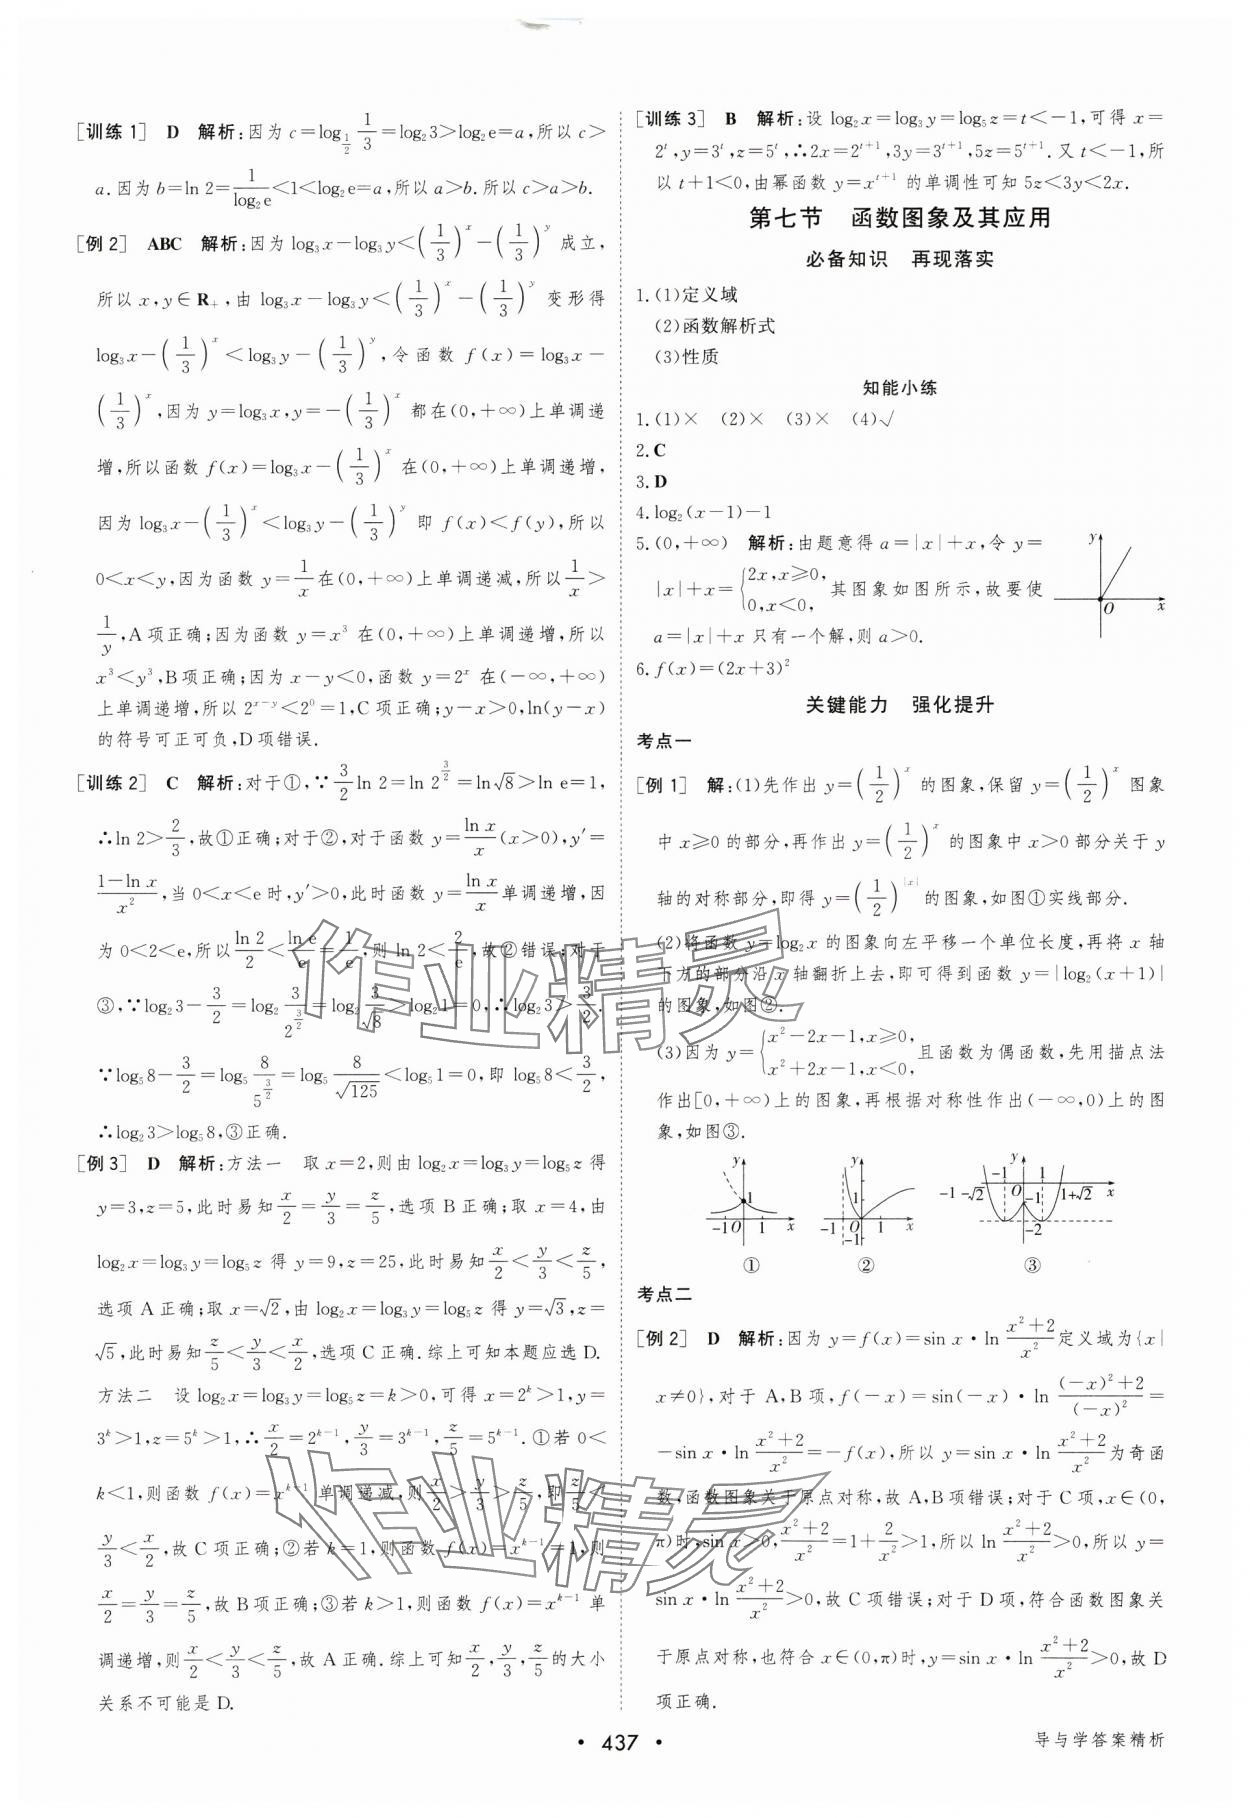 [训练1] D 解析:因为 c=log_{1/2} 1/3=log₂3>log₂e=a,所以 c>
a.因为 b=ln 2=1/log₂e<1<log₂e=a,所以 a>b.所以 c>a>b.
[例2] ABC 解析:因为 log₃x-log₃y<(1/3)^x-(1/3)^y 成立,
所以 x,y∈R₊,由 log₃x-log₃y<(1/3)^x-(1/3)^y 变形得
log₃x-(1/3)^x<log₃y-(1/3)^y,令函数 f(x)=log₃x-
(1/3)^x,因为 y=log₃x,y=-(1/3)^x 都在(0,+∞)上单调递
增,所以函数 f(x)=log₃x-(1/3)^x 在(0,+∞)上单调递增,
因为 log₃x-(1/3)^x<log₃y-(1/3)^y 即 f(x)<f(y),所以
0<x<y,因为函数 y=1/x在(0,+∞)上单调递减,所以1/x>
1/y,A项正确;因为函数 y=x³ 在(0,+∞)上单调递增,所以
x³<y³,B项正确;因为 x-y<0,函数 y=2^x 在(-∞,+∞)
上单调递增,所以 2^{x-y}<2⁰=1,C项正确;y-x>0,ln(y-x)
的符号可正可负,D项错误.
[训练2] C 解析:对于①,∵3/2 ln 2=ln 2^{3/2}=ln√8>ln e=1,
∴ln 2>2/3,故①正确;对于②,对于函数 y=ln x/x(x>0),y′=
(1-ln x)/x²,当 0<x<e时,y′>0,此时函数 y=ln x/x单调递增,因
为 0<2<e,所以 ln 2/2<ln e/e=1/e,则 ln 2<2/e,故②错误;对于
③,∵log₂3-3/2=log₂ 3/2^{3/2}=log₂ 3/√8>log₂1=0,∴log₂3>3/2.
∵log₅8-3/2=log₅ 8/5^{3/2}=log₅ 8/√125<log₅1=0,即 log₅8<3/2,
∴log₂3>log₅8,③正确.
[例3] D 解析:方法一 取 x=2,则由 log₂x=log₃y=log₅z 得
y=3,z=5,此时易知x/2=y/3=z/5,选项B正确;取 x=4,由
log₂x=log₃y=log₅z 得 y=9,z=25,此时易知x/2<y/3<z/5,
选项A正确;取 x=√2,由 log₂x=log₃y=log₅z 得 y=√3,z=
√5,此时易知z/5<y/3<x/2,选项C正确.综上可知本题应选D.
方法二 设 log₂x=log₃y=log₅z=k>0,可得 x=2^k>1,y=
3^k>1,z=5^k>1,∴x/2=2^{k-1},y/3=3^{k-1},z/5=5^{k-1}.①若 0<
k<1,则函数 f(x)=x^{k-1}单调递减,则x/2>y/3>z/5,即z/5<
y/3<x/2,故C项正确;②若 k=1,则函数 f(x)=x^{k-1}=1,则
x/2=y/3=z/5,故B项正确;③若 k>1,则函数 f(x)=x^{k-1} 单
调递增,则x/2<y/3<z/5,故A正确.综上可知x/2,y/3,z/5的大小
关系不可能是D.
[训练3] B 解析:设 log₂x=log₃y=log₅z=t<-1,可得 x=
2^t,y=3^t,z=5^t,∴2x=2^{t+1},3y=3^{t+1},5z=5^{t+1}.又 t<-1,所
以 t+1<0,由幂函数 y=x^{t+1} 的单调性可知 5z<3y<2x.
第七节 函数图象及其应用
必备知识 再现落实
1.(1)定义域
(2)函数解析式
(3)性质
知能小练
1.(1)× (2)× (3)× (4)√
2.C
3.D
4.log₂(x-1)-1
5.(0,+∞) 解析:由题意得 a=|x|+x,令 y=
|x|+x={2x,x≥0, 0,x<0, 其图象如图所示,故要使
a=|x|+x 只有一个解,则 a>0.
y
O x
6.f(x)=(2x+3)²
关键能力 强化提升
考点一
[例1] 解:(1)先作出 y=(1/2)^x 的图象,保留 y=(1/2)^x 图象
中 x≥0 的部分,再作出 y=(1/2)^x 的图象中 x>0部分关于 y
轴的对称部分,即得 y=(1/2)^{|x|} 的图象,如图①实线部分.
(2)将函数 y=log₂x 的图象向左平移一个单位长度,再将 x 轴
下方的部分沿 x 轴翻折上去,即可得到函数 y=|log₂(x+1)|
的图象,如图②.
(3)因为 y={x²-2x-1,x≥0, x²+2x-1,x<0, 且函数为偶函数,先用描点法
作出[0,+∞)上的图象,再根据对称性作出(-∞,0)上的图
象,如图③.
y 1 -1 O 1 x
①
y 1 -1 O 1 x -1
②
y -1 1 -1-√2 O -1 1+√2 x -2
③
考点二
[例2] D 解析:因为 y=f(x)=sin x·ln (x²+2)/x² 定义域为{x|
x≠0},对于A,B项,f(-x)=sin(-x)·ln ((-x)²+2)/(-x)²=
-sin x·ln (x²+2)/x²=-f(x),所以 y=sin x·ln (x²+2)/x² 为奇函
数,函数图象关于原点对称,故A,B项错误;对于C项,x∈(0,
π)时,sin x>0,(x²+2)/x²=1+2/x²>1,所以 ln (x²+2)/x²>0,所以 y=
sin x·ln (x²+2)/x²>0,故C项错误;对于D项,符合函数图象关
于原点对称,也符合 x∈(0,π)时,y=sin x·ln (x²+2)/x²>0,故D
项正确.
作业精灵
作业精灵
• 437 •
导与学答案精析